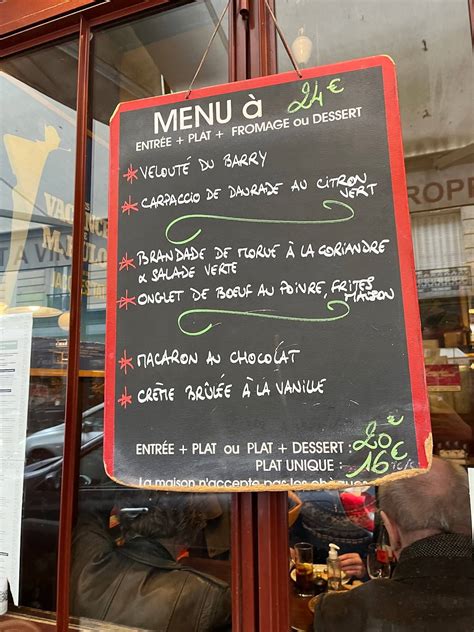 MENU à 24 €
ENTRÉE + PLAT + FROMAGE ou DESSERT
* VELOUTÉ DU BARRY
* CARPACCIO DE DAURADE AU CITRON
VERT
* BRANDADE DE MORUE À LA CORIANDRE
& SALADE VERTE
* ONGLET DE BŒUF AU POIVRE, FRITES
MAISON
* MACARON AU CHOCOLAT
* CRÈME BRÛLÉE À LA VANILLE
ENTRÉE + PLAT ou PLAT + DESSERT : 20 €
PLAT UNIQUE : 16 €
La maison n'accepte pas les chèques